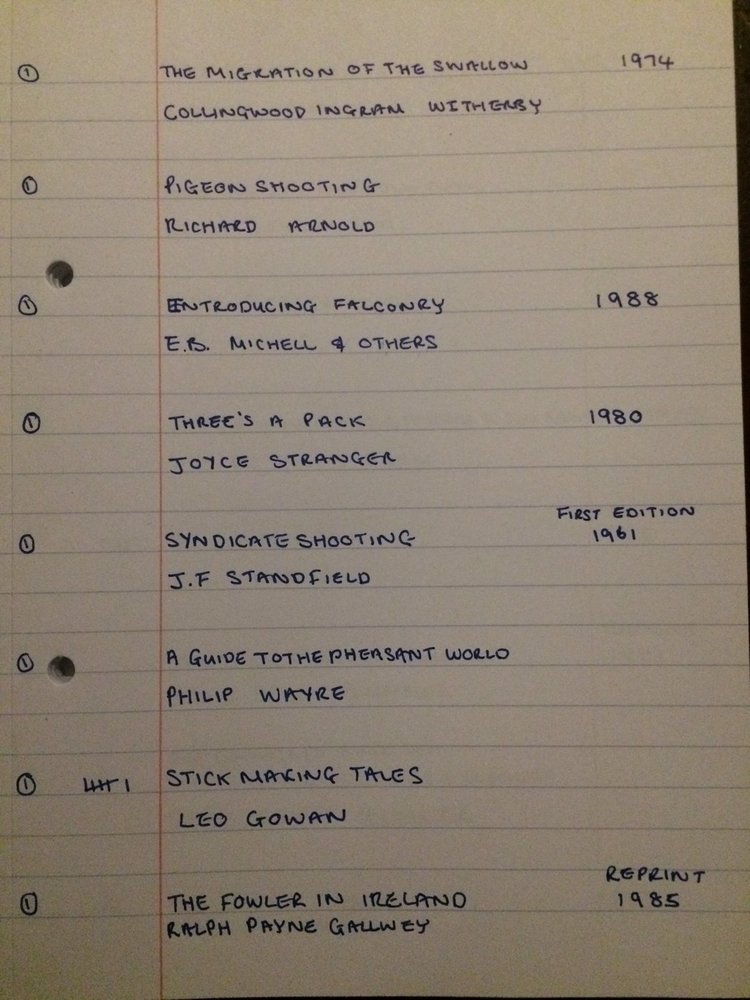 ① THE MIGRATION OF THE SWALLOW 1974
COLLINGWOOD INGRAM WITHERBY
① PIGEON SHOOTING
RICHARD ARNOLD
① INTRODUCING FALCONRY 1988
E.B. MICHELL & OTHERS
① THREE'S A PACK 1980
JOYCE STRANGER
FIRST EDITION
① SYNDICATE SHOOTING 1961
J.F STANDFIELD
① A GUIDE TO THE PHEASANT WORLD
PHILIP WAYRE
① STICK MAKING TALES
LEO GOWAN
REPRINT
① THE FOWLER IN IRELAND 1985
RALPH PAYNE GALLWEY